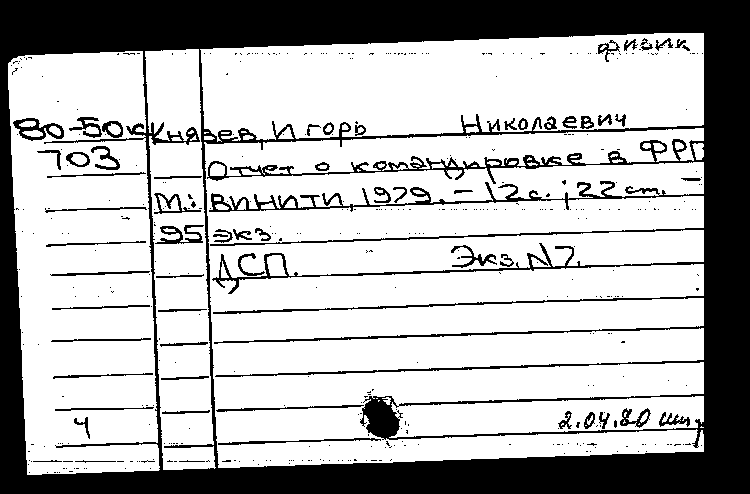 физик
80-50к Князев, Игорь Николаевич
703 Отчет о командировке в ФРГ
М.: ВИНИТИ, 1979. - 12 с.; 22 см. -
95 экз.
ДСП. Экз. N7.
4 2.04.80